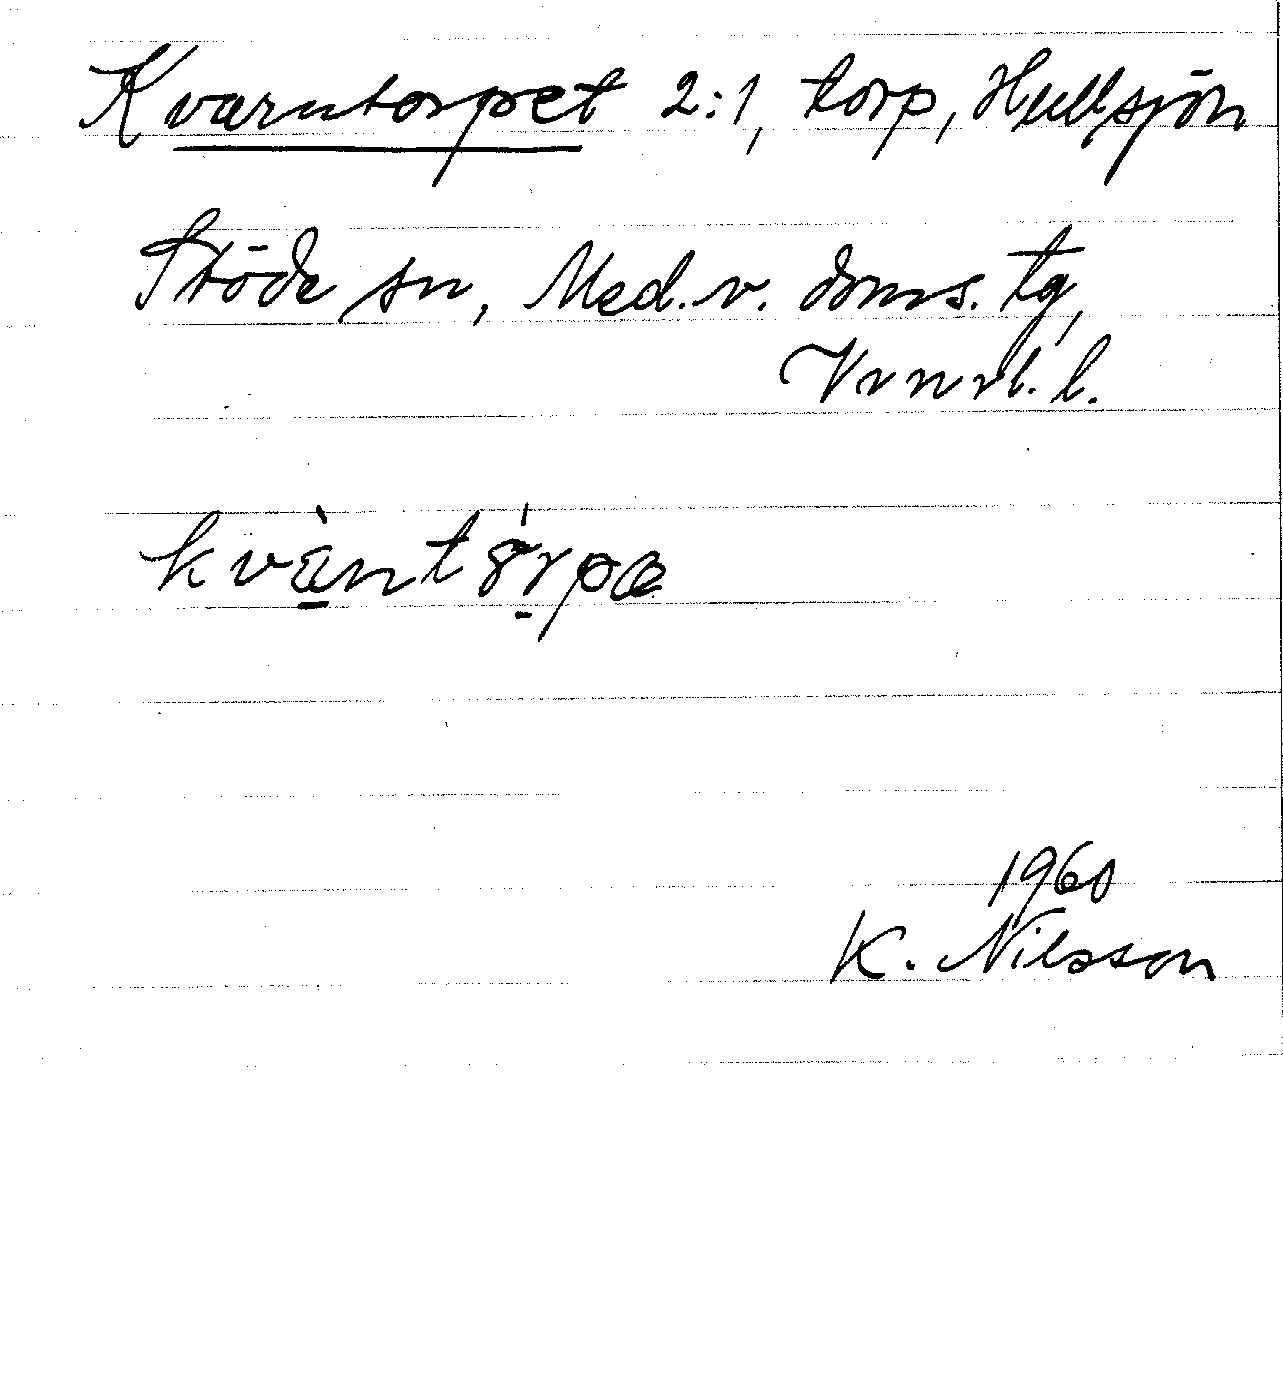 Kvarntorpet 2:1, torp, Hullsjön
Stöde sn, Med. v. doms. tg,
Vrnrl. l.
kvàntórpa
1960
K. Nilsson